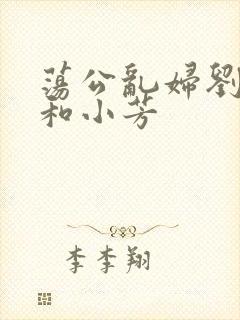 蕩公亂婦劉
和小芳
李李翔